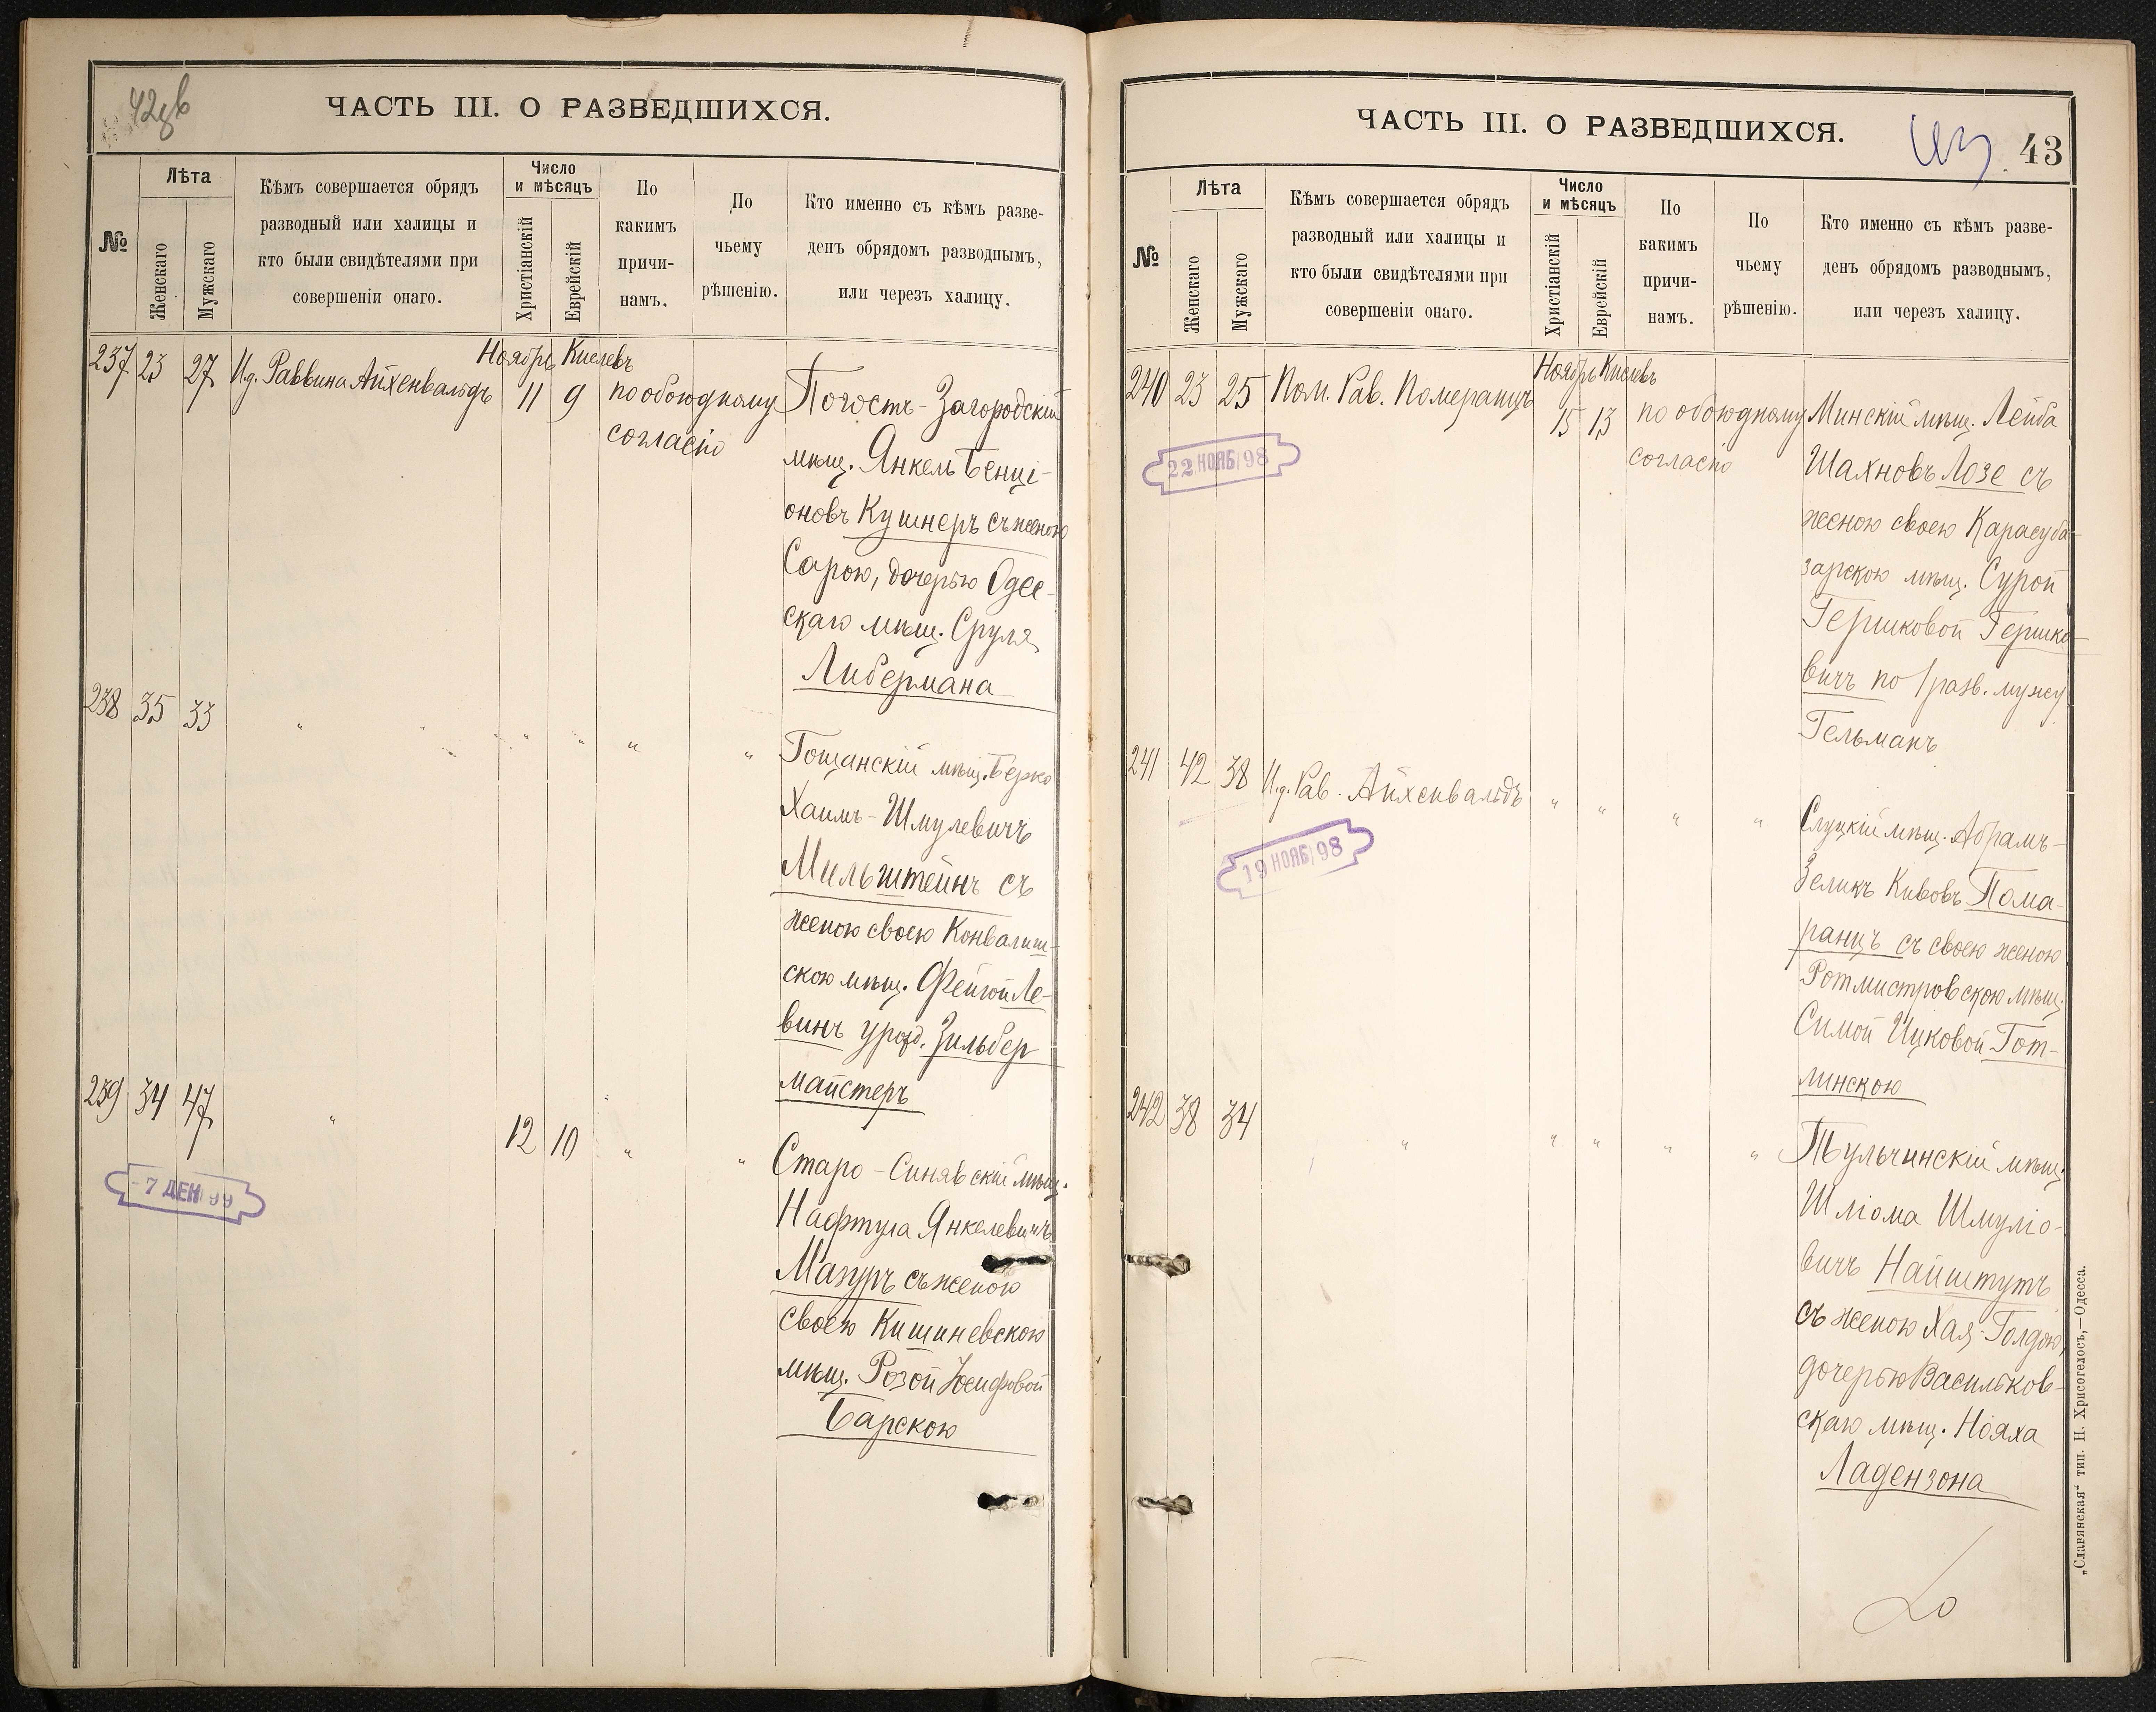 42 об
ЧАСТЬ III. О РАЗВЕДШИХСЯ.
№
Лѣта
Женскаго
Мужскаго
Кѣмъ совершается обрядъ
разводный или халицы и
кто были свидѣтелями при
совершеніи онаго.
Число
и мѣсяцъ
Христіанскій
Еврейскій
По
какимъ
причи-
намъ.
По
чьему
рѣшенію.
Кто именно съ кѣмъ разве-
денъ обрядомъ разводнымъ,
или черезъ халицу.
237 23 27 И.д. Раввина Айхенвальдъ
Ноябрь Кислевъ
11 9 по обоюдному
согласію
Погостъ-Загородскій
мѣщ. Янкель Бенці-
оновъ Кушнеръ съ женою
Сарою, дочерью Одес-
скаго мѣщ. Сруля
Либермана
238 35 33 " " " " "
Гощанскій мѣщ. Берко
Хаимъ-Шмулевичъ
Мильштейнъ съ
женою своею Конвалиш-
скою мѣщ. Фейгой Ле-
винъ урожд. Зильбер
майстеръ
239 34 47 " 12 10 " "
-7 ДЕК 99
Старо-Синявскій мѣщ.
Нафтула Янкелевичъ
Мазуръ съ женою
своею Кишиневскою
мѣщ. Розой Іосифовой
Барскою
ЧАСТЬ III. О РАЗВЕДШИХСЯ.
43
№
Лѣта
Женскаго
Мужскаго
Кѣмъ совершается обрядъ
разводный или халицы и
кто были свидѣтелями при
совершеніи онаго.
Число
и мѣсяцъ
Христіанскій
Еврейскій
По
какимъ
причи-
намъ.
По
чьему
рѣшенію.
Кто именно съ кѣмъ разве-
денъ обрядомъ разводнымъ,
или черезъ халицу.
240 23 25 Пом. Рав. Померанцъ
Ноябрь Кислевъ
15 13 по обоюдному
согласію
22 НОЯБ 98
Минскій мѣщ. Лейба
Шахновъ Лозе съ
женою своею Карасуба-
зарскою мѣщ. Сурой
Гершковой Гершко-
вичъ по 1 разв. мужу
Гельманъ
241 42 38 И.д. Рав. Айхенвальдъ " " " "
19 НОЯБ 98
Слуцкій мѣщ. Абрамъ-
Зеликъ Кивовъ Пома-
ранцъ съ своею женою
Ротмистровскою мѣщ.
Симой Ицковой Гот-
линскою
242 38 34 " " " " "
Тульчинскій мѣщ.
Шліома Шмуліо-
вичъ Найштутъ
съ женою Хая-Голдою,
дочерью Васильков-
скаго мѣщ. Нояха
Ладензона
„Славянская“ тип. Н. Хрисогелосъ,—Одесса.